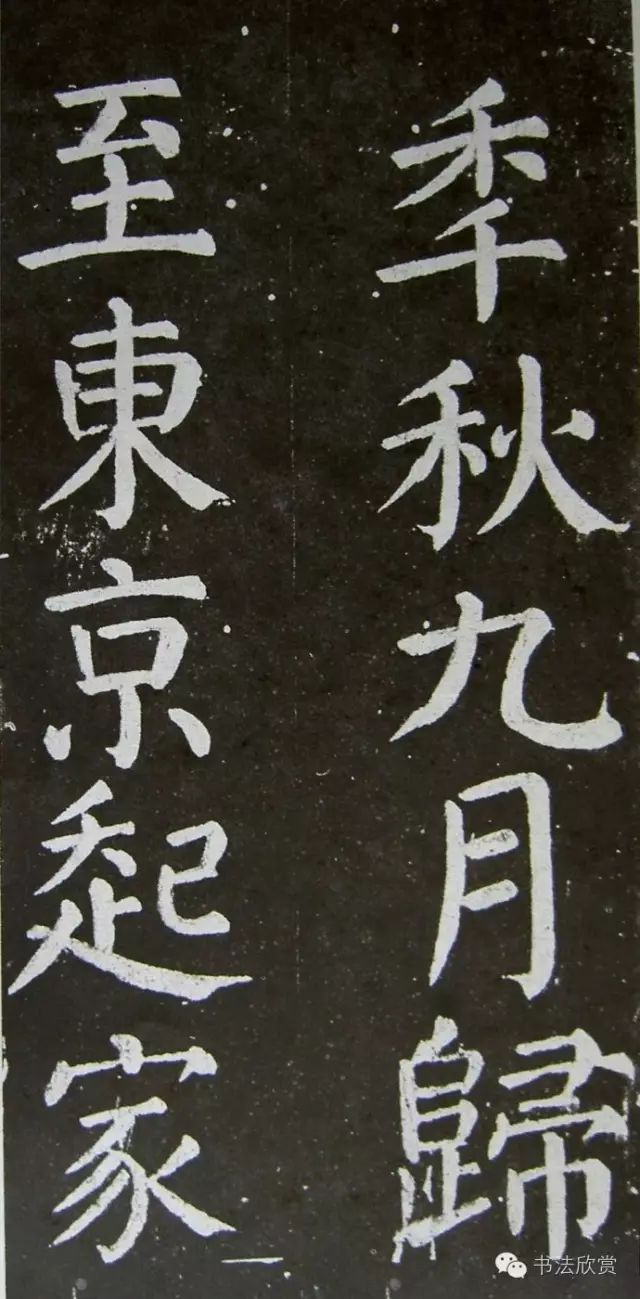 季秋九月歸
至東京起家
书法欣赏